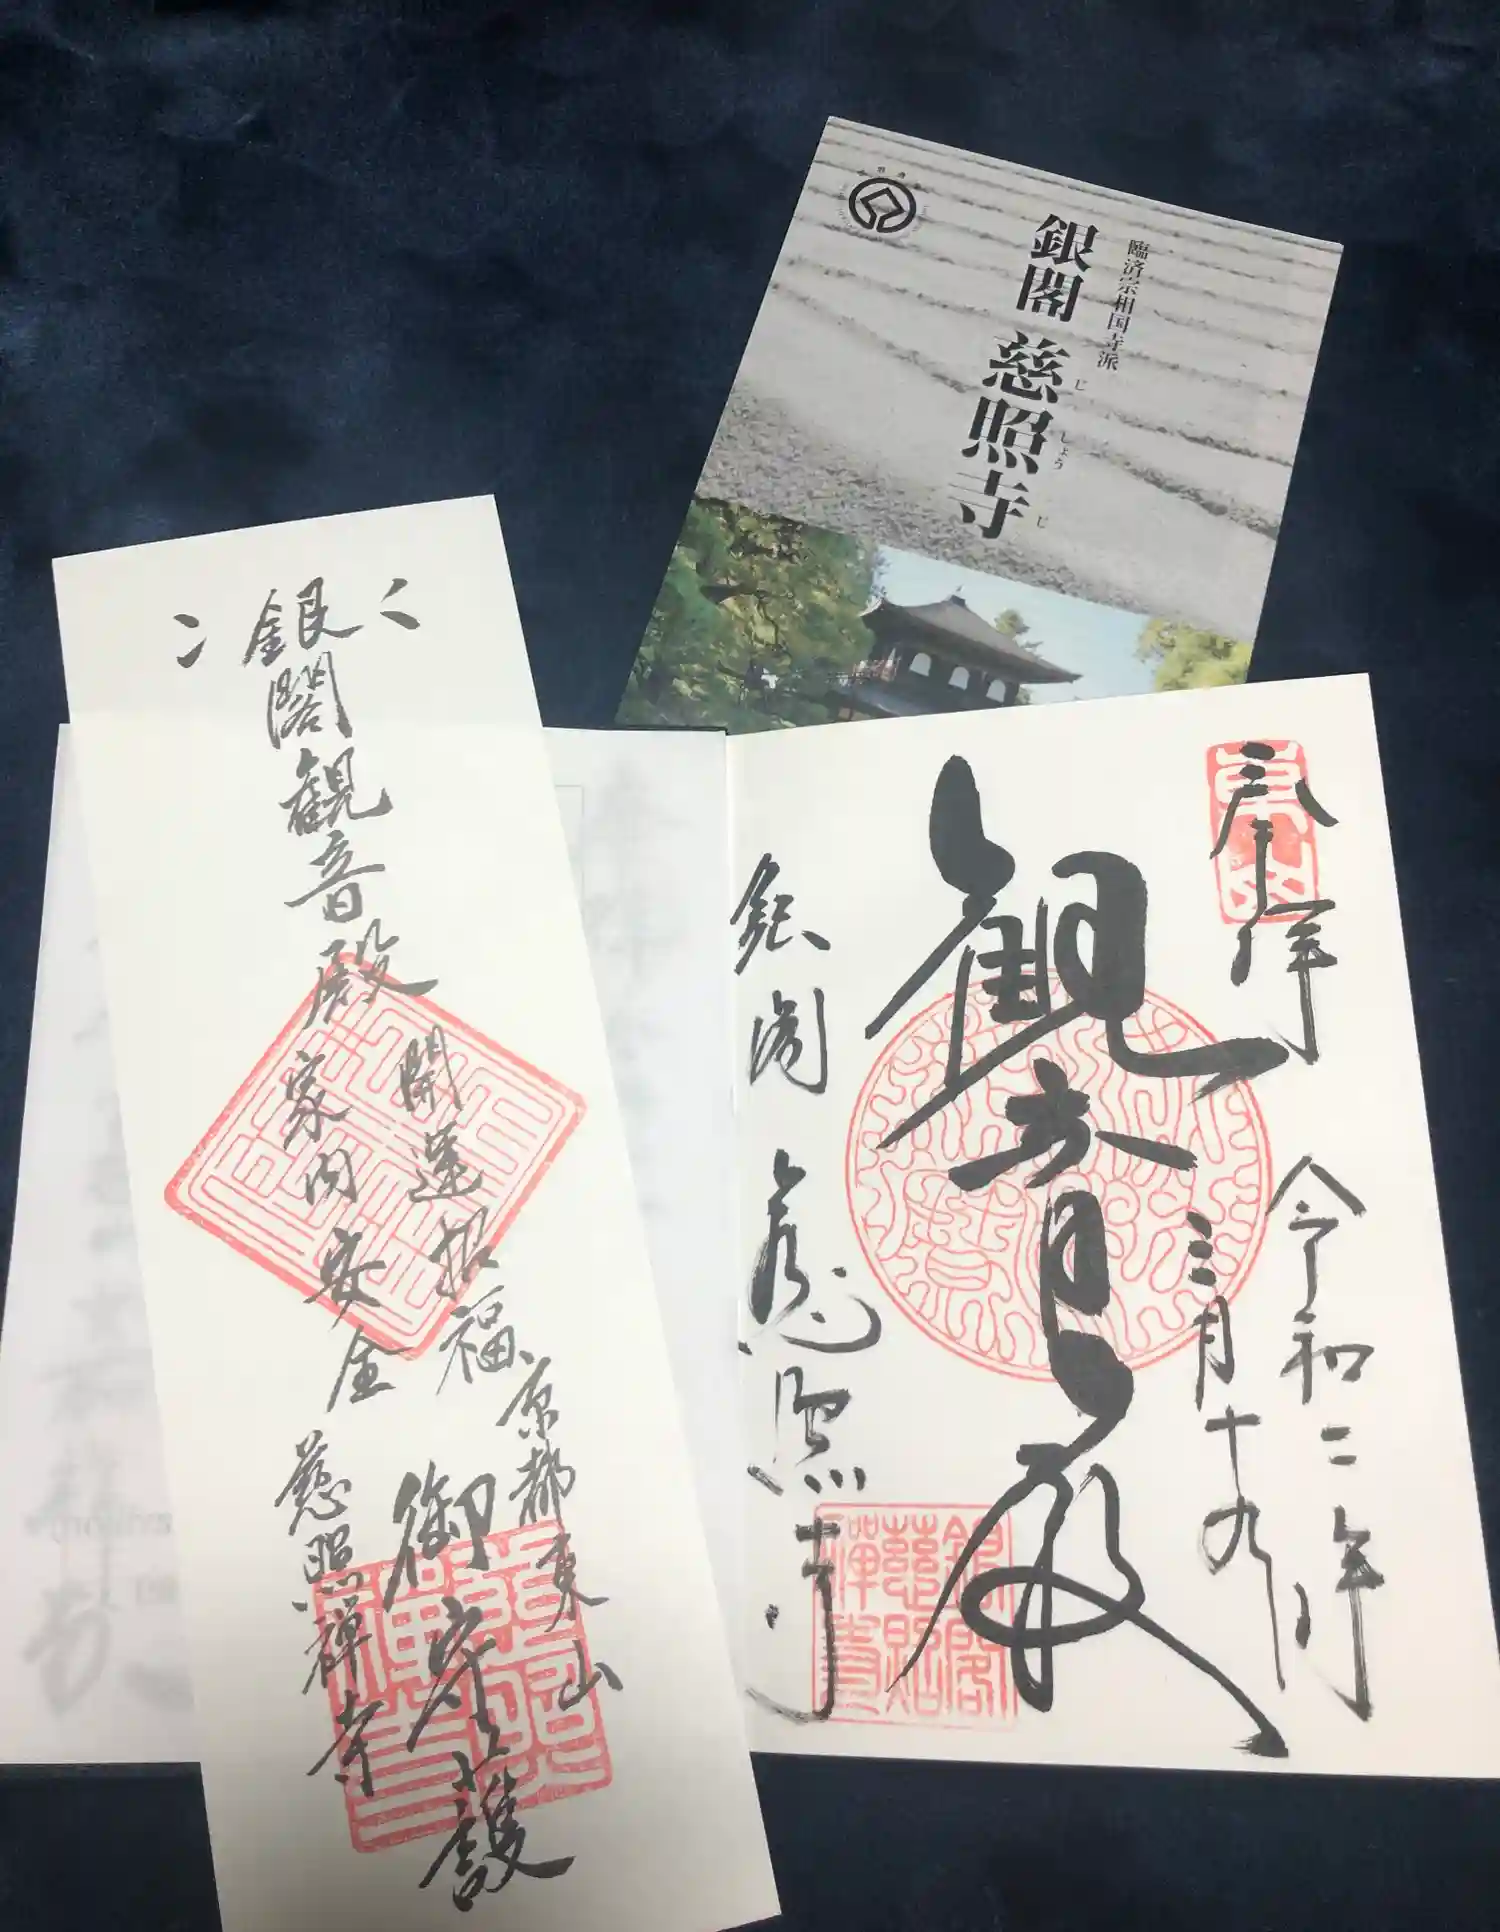 臨済宗相国寺派
銀閣 慈照寺
じ しょう じ
銀閣観音殿
開運招福
家内安全
京都東山
御守護
慈照禅寺
奉拝
令和二年
三月十九日
観音殿
銀閣慈照寺
銀閣
慈照
禅寺